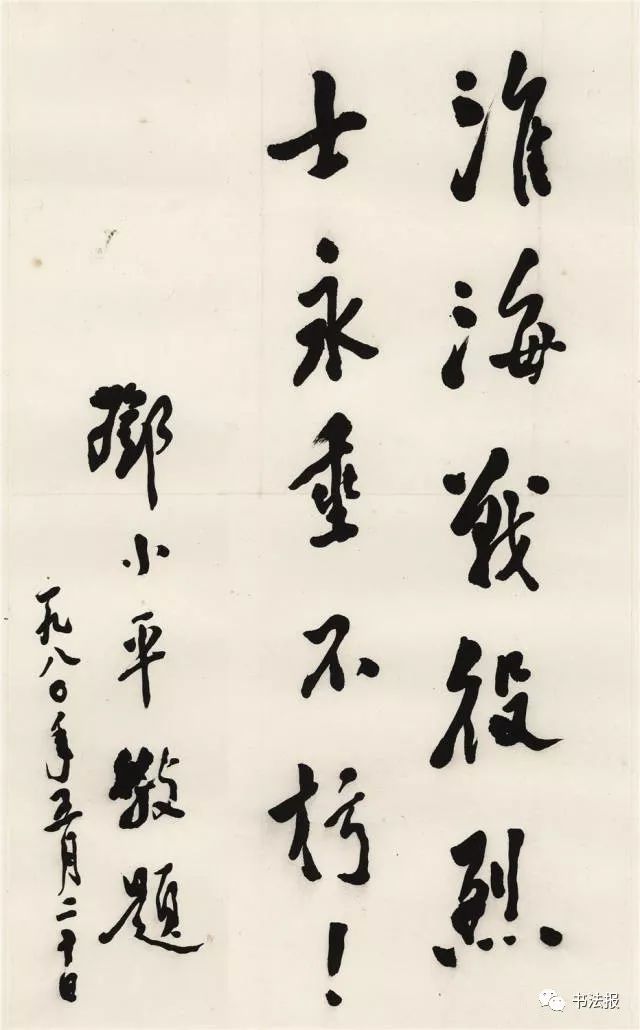 淮海战役烈
士永垂不朽！
鄧小平敬题
一九八〇年五月二十日
书法报